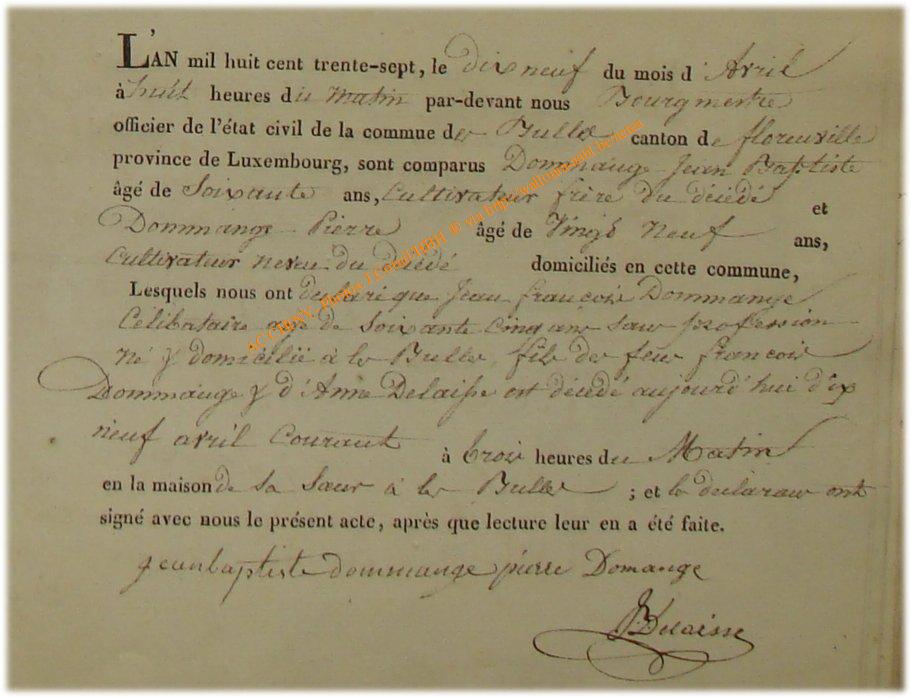 L'AN mil huit cent trente-sept, le dix neuf du mois d'Avril
à huit heures du matin par-devant nous Bourgmestre
officier de l'état civil de la commue de la Bulle canton de florenville
province de Luxembourg, sont comparus Dommange Jean Baptiste
âgé de Soixante ans, Cultivateur frère du décédé et
Dommange Pierre âgé de Vingt Neuf ans,
Cultivateur neveu du décédé domiciliés en cette commune,
Lesquels nous ont declaré que Jean françois Dommange
Célibataire agé de Soixante Cinq ans Sans profession
Né & domicilié à la Bulle, fils de feu françois
Dommange & d'Anne Delaisse est décédé aujourd'hui dix
neuf avril Courant à trois heures du Matin
en la maison de Sa Sœur à la Bulle ; et les declarans ont
signé avec nous le présent acte, après que lecture leur en a été faite.
jeanbaptiste dommange pierre Domange
Delaisse